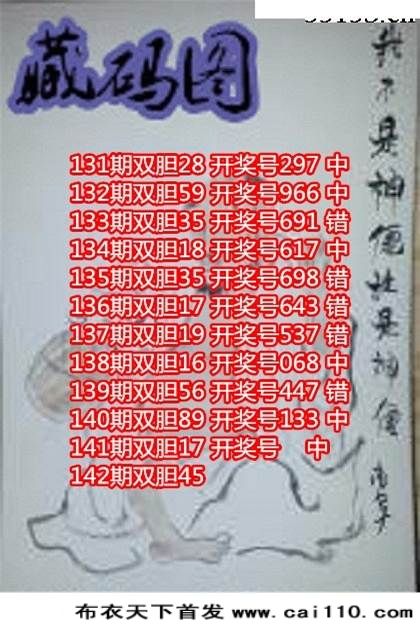 藏码图
131期双胆28 开奖号297 中
132期双胆59 开奖号966 中
133期双胆35 开奖号691 错
134期双胆18 开奖号617 中
135期双胆35 开奖号698 错
136期双胆17 开奖号643 错
137期双胆19 开奖号537 错
138期双胆16 开奖号068 中
139期双胆56 开奖号447 错
140期双胆89 开奖号133 中
141期双胆17 开奖号 中
142期双胆45
布衣天下首发 www.cai110.com